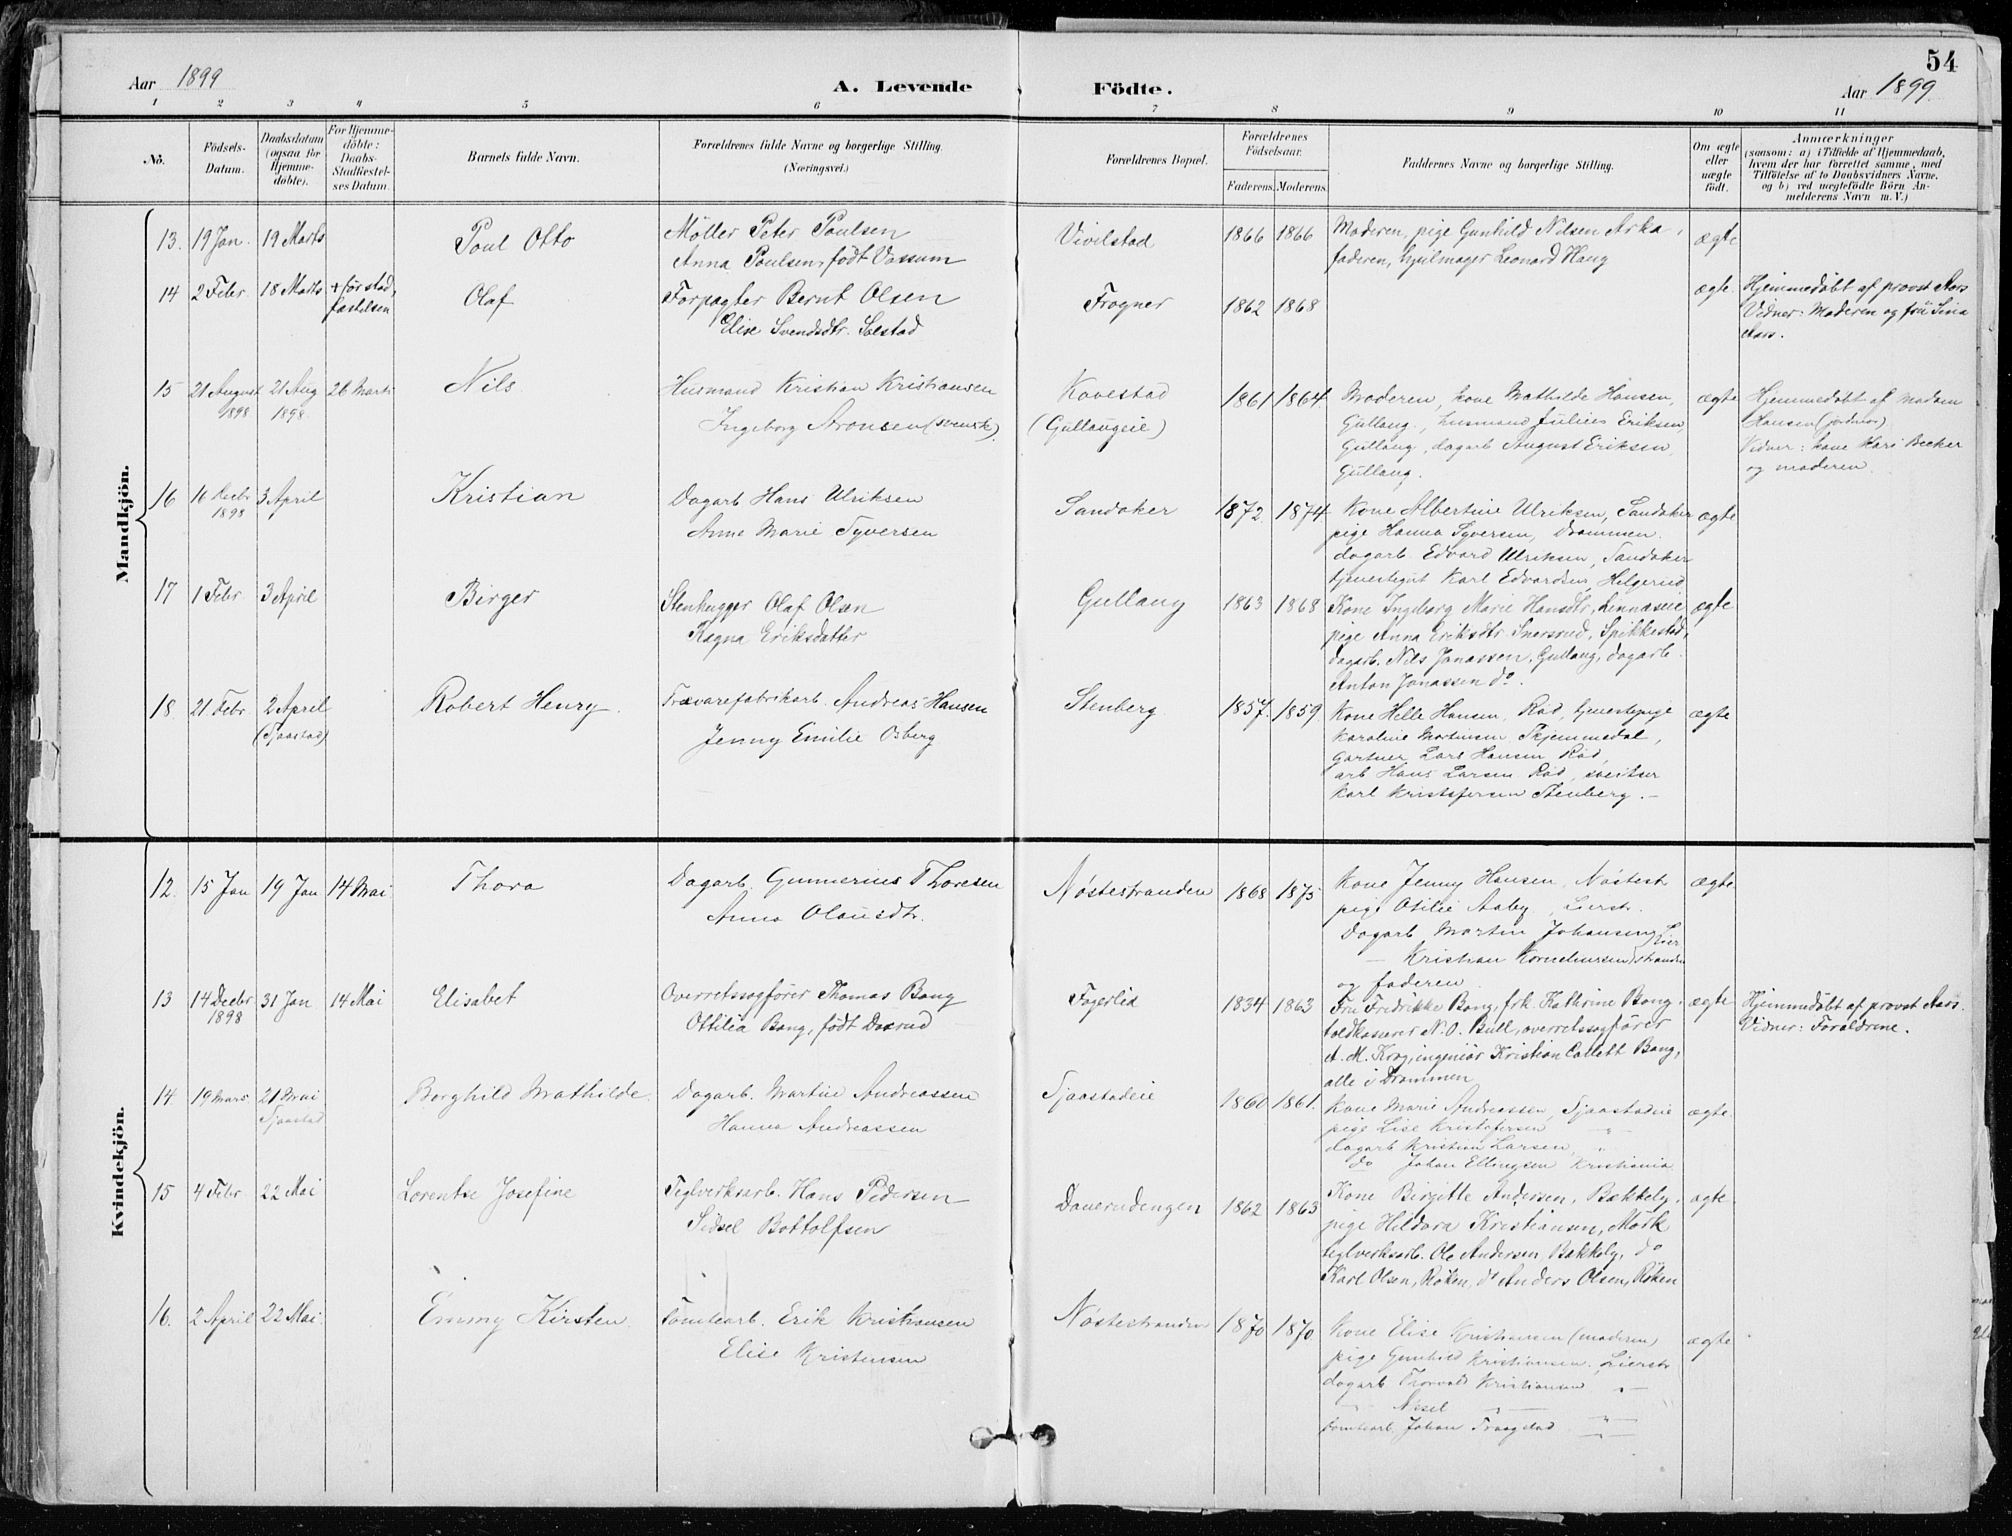 54
Aar 1899
A. Levende Födte.
Aar 1899
1 2 3 4 5 6 7 8 9 10 11
No.
Födsels-
Datum.
Daabsdatum
(ogsaa for
Hjemme-
døbte).
For Hjemme-
døbte:
Daabs-
Stadfæstel-
ses Datum.
Barnets fulde Navn.
Forældrenes fulde Navne og borgerlige Stilling.
(Næringsvei.)
Forældrenes Bopæl.
Forældrenes
Fødselsaar.
Faderens. Moderens.
Faddernes Navne og borgerlige Stilling.
Om ægte
eller
uægte
født.
Anmærkninger
(saasom: a) i Tilfælde af Hjemmedaab,
hvem der har forrettet samme, med
Tilføielse af to Daabsvidners Navne.
og b) ved uægtefødte Börn An-
melderens Navn m. V.)
Mandkjön.
13. 19 Jan. 19 Marts Poul Otto
Möller Peter Poulsen
Anna Poulsen, født Vossum
Vivilstad 1866 1866
Moderen, pige Gunhild Nilsen Arka,
faderen, hjulmager Leonard Haug
ægte
14 2 Febr. 18 Marts + før stad,
fæstelsen
Olaf
Forpagter Bernt Olsen
Elise Svendsdtr. Solstad
Frogner 1862 1868
ægte.
Hjemmedøbt af provst Aars
Vidner: Moderen og frü Lina
Aars.
15 21 August 21 Aug 26 Marts
1898 1898
Nils
Husmand Kristian Kristiansen
Ingeborg Aronsen (svensk)
Kovestad
(Gullaugeie)
1861 1864
Moderen, kone Mathilde Hansen,
Gullaug, husmand Julius Eriksen,
Gullaug, dagarb August Eriksen
Gullaug.
ægte
Hjemmedøbt af madam
Hansen (jordmor)
Vidner: kone Kari Becker
og moderen.
16 16 Decbr 3 April
1898
Kristian
Dagarb Hans Ulriksen
Anne Marie Syversen
Sandaker 1872. 1874
Kone Albertine Ulriksen, Sandaker
pige Hanna Syversen, Drammen.
dagarb. Edvard Ulriksen, Sandaker
tjenestegut Karl Edvardsen, Helgerud
ægte
17 1 Febr 3 April
Birger
Stenhugger Olaf Olsen
Ragna Eriksdatter
Gullaug 1863 1868
Kone Ingeborg Marie Hansdtr, Linnæseie
pige Anna Eriksdtr Snarsrud, Spikkestad,
dagarb. Nils Jonassen, Gullaug, dagarb.
Anton Jonassen do.
ægte
18. 21 Febr. 2 April
(Sjaastad)
Robert Henry.
Trævarefabrikarb. Andreas Hansen
Jenny Emilie Osberg
Stenberg. 1857. 1859
Kone Helle Hansen, Rød, tjenestepige
Karoline Martinsen Skjemmedal,
Gartner Lars Hansen Rød,
arb Hans Larsen Rød, sveitser
Karl Kristofersen Stenberg. —
ægte
Kvindekjön.
12. 15 Jan 19 Jan 14 Mai
Thora
Dagarb. Gunnerius Thoresen
Anna Olausdtr.
Nøstestranden 1868 1875
Kone Jenny Hansen, Nøstestr
pige Otilie Aaby, Lierstr.
Dagarb Martin Johansen Lier
— Kristian Korneliussen stranden
og faderen
ægte
13 14 Decbr 31 Jan 14 Mai
1898
Elisabet
Overretssagfører Thomas Bang
Ottilia Bang, født Dosrud
Fagerlid 1834 1863
Fru Fredrikke Bang, frk Kathrine Bang,
toldkasserer N. O. Bull, overretssagfører
A. M. Krog, ingeniør Kristian Collett Bang,
alle i Drammen
ægte
Hjemmedøbt af provst Aars.
Vidner: Forældrene.
14. 19 Mars 21 Mai
Sjaastad
Borghild Mathilde.
Dagarb. Martin Andreassen
Hanna Andreassen
Sjaastadeie 1860 1861.
Kone Marie Andreassen, Sjaastadeie
pige Lise Kristofersen — " —
dagarb Kristian Larsen, "
do Johan Ellingsen Kristiania
ægte
15 4 Febr 22 Mai
Lorentse Josefine
Teglverksarb. Hans Pedersen
Sidsel Bottolfsen
Dauerudengen 1862 1863
Kone Birgitte Andersen, Bækkely,
pige Hildora Kristiansen, Mørk
teglverksarb. Ole Andersen, Bækkely, do
Karl Olsen, Røken, do Anders Olsen, Røken
ægte
16. 2 April 22 Mai.
Emmy Kirsten.
Tomtearb. Erik Kristiansen
Elise Kristensen
Nøstestranden 1870 1870
Kone Elise Kristiansen (moderen)
pige Gunhild Kristiansen, Lierstr
dagarb Thorvald Kristiansen — " —
— " —
Tomtearb Johan Traagstad — " —
ægte